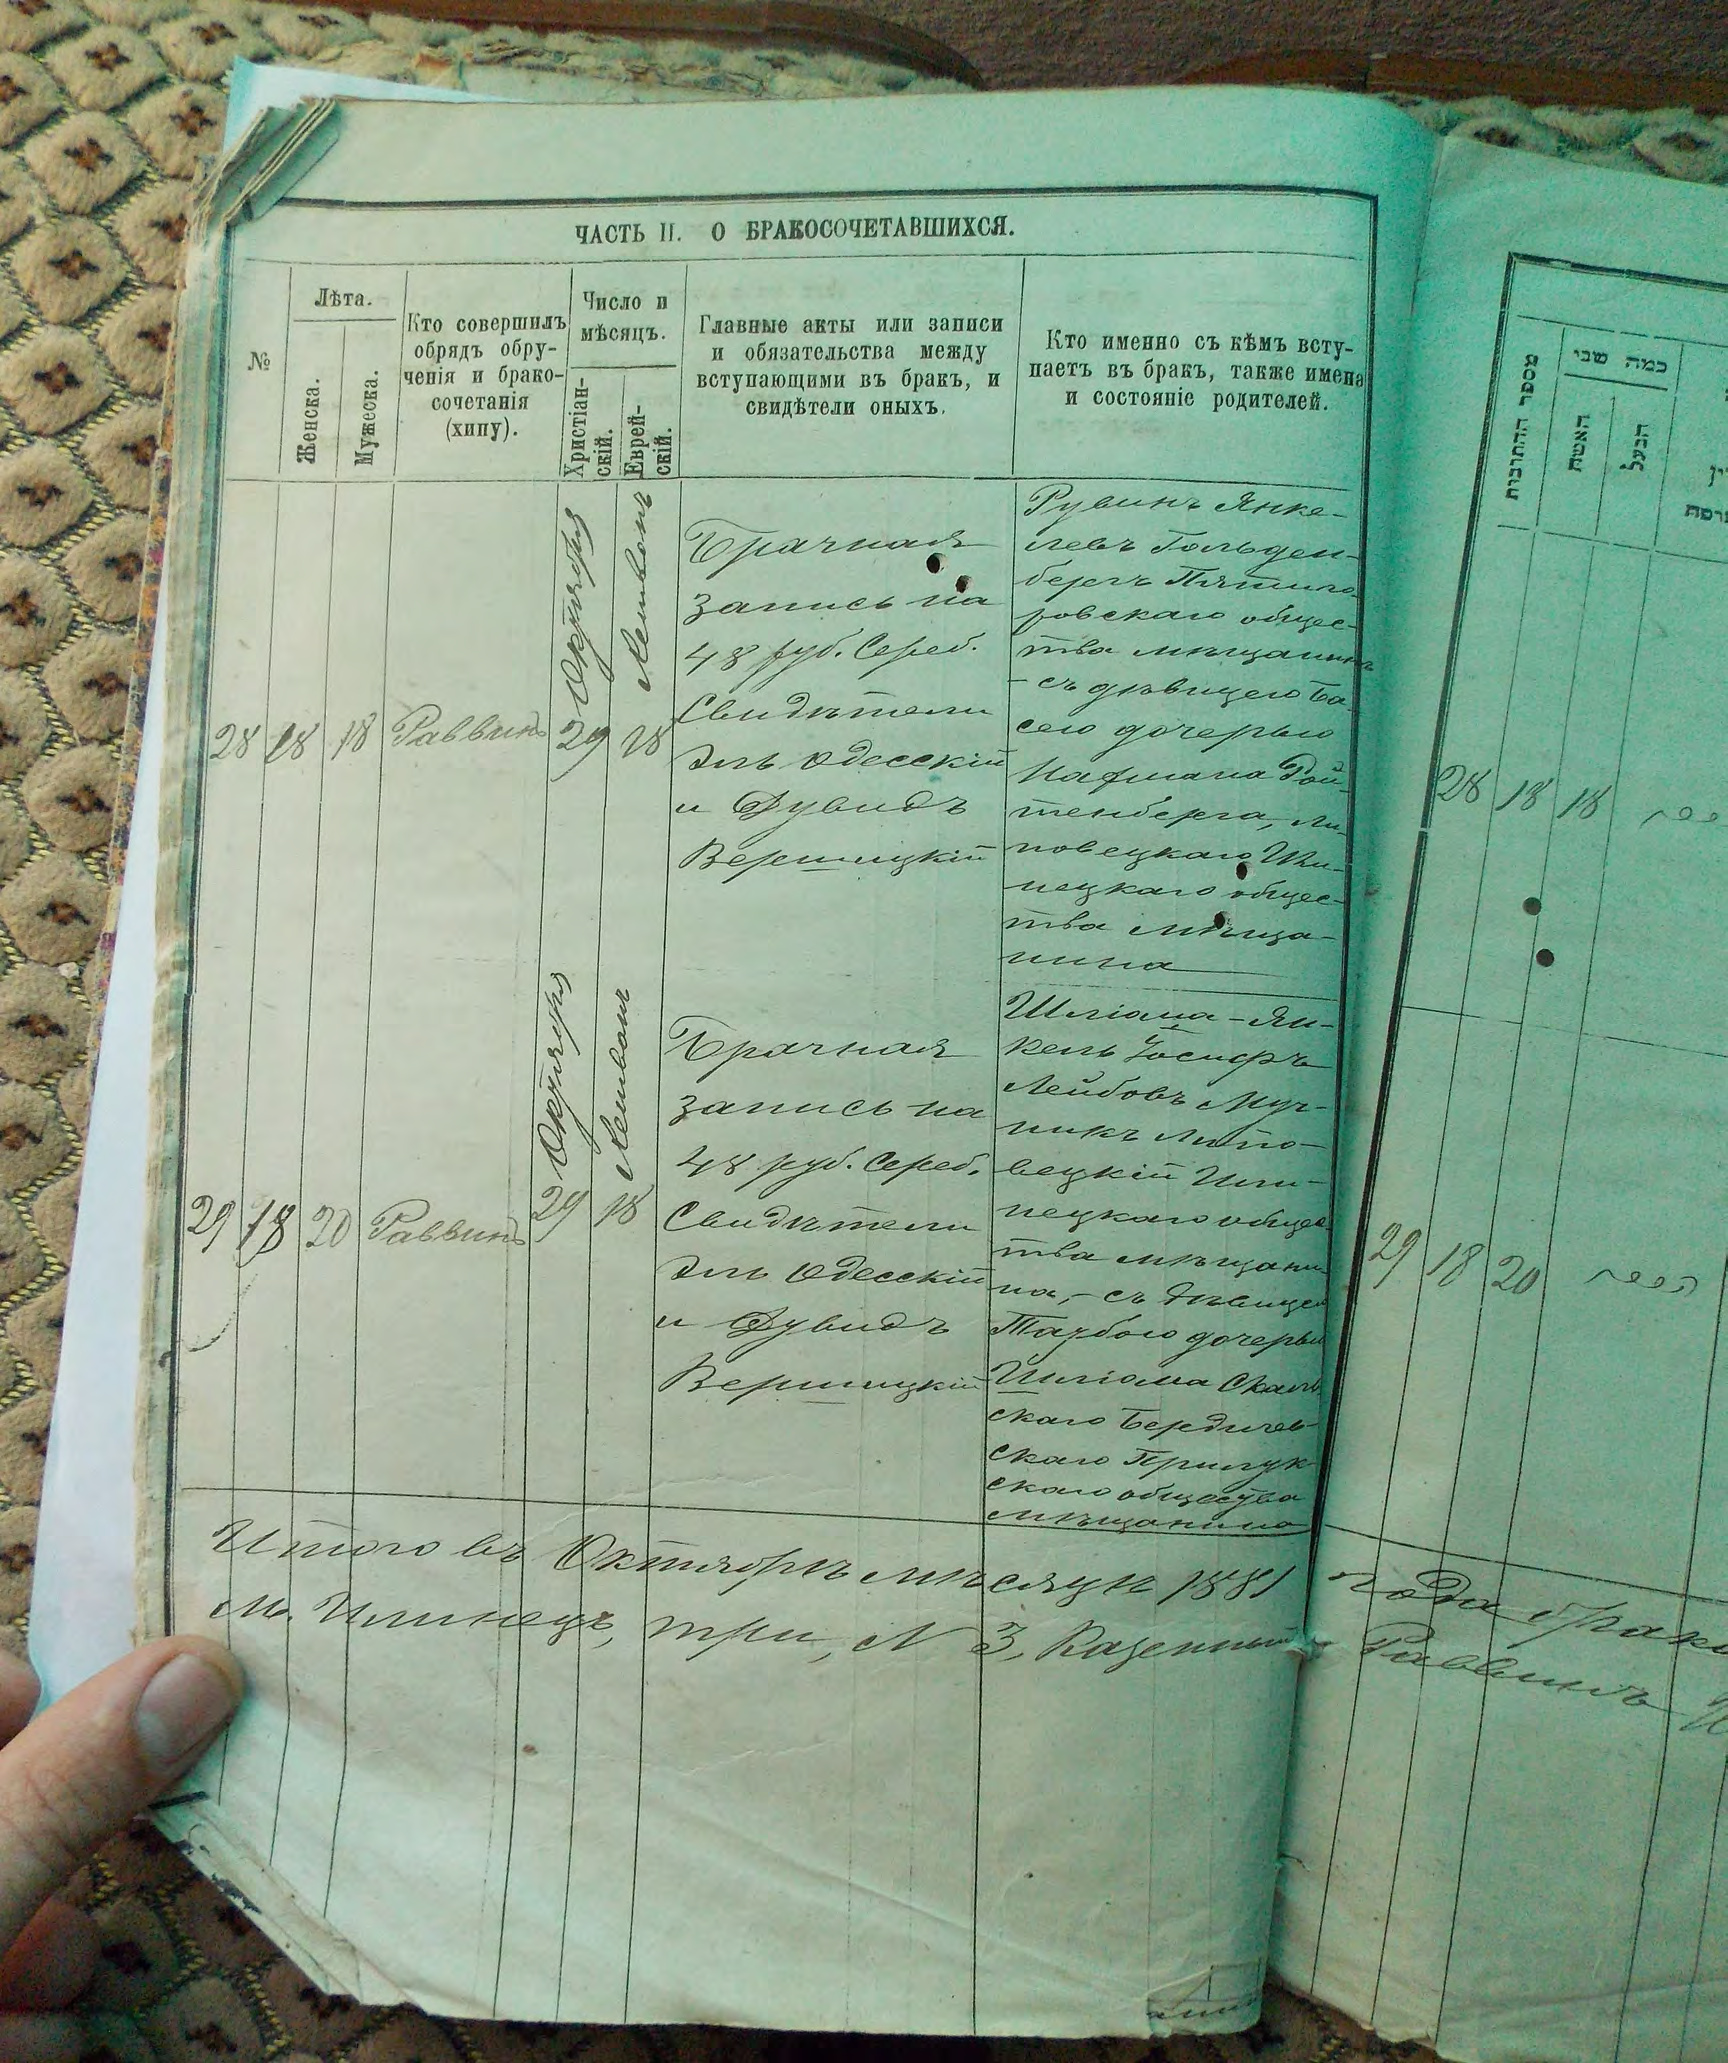 ЧАСТЬ II. О БРАКОСОЧЕТАВШИХСЯ.
№
Лѣта.
Женска.
Мужеска.
Кто совершилъ
обрядъ обру-
ченія и брако-
сочетанія
(хипу).
Число и
мѣсяцъ.
Христіан-
скій.
Еврей-
скій.
Главные акты или записи
и обязательства между
вступающими въ бракъ, и
свидѣтели оныхъ.
Кто именно съ кѣмъ всту-
паетъ въ бракъ, также имена
и состояніе родителей.
28 18 18 Раввинъ
Октября
29
18
Брачная
запись на
48 руб. Сереб.
Свидѣтели
Эль Одесскій
и Дувидъ
Вершицкій
Рувинъ Янке-
левъ Гольден-
бергъ Пятиго
ровскаго общес-
тва мѣщанинъ
- съ дѣвицею Ба
сею дочерью
Нафтана Рой-
тенберга, Ли-
повецкаго Или-
нецкаго общес-
тва мѣща-
нина
29 18 20 Раввинъ
Октября
29
18
Брачная
запись на
48 руб. Сереб.
Свидѣтели
Эль Одесскій
и Дувидъ
Вершицкій
Шліома-Ян-
кель Іосифъ
Лейбовъ Муч-
никъ Липо-
вецкій Или-
нецкаго общес
тва мѣщани-
на, - съ дѣвицею
дочерью
Шліома
скаго Бердичев-
скаго Прилук-
скаго общества
мѣщанина
Итого въ Октябрѣ мѣсяцѣ 1881 года
м. Илинецъ, три, N 3, Казенный Раввинъ
מספר החתונות
כמה שני
האשה
הבעל
28 18 18
29 18 20